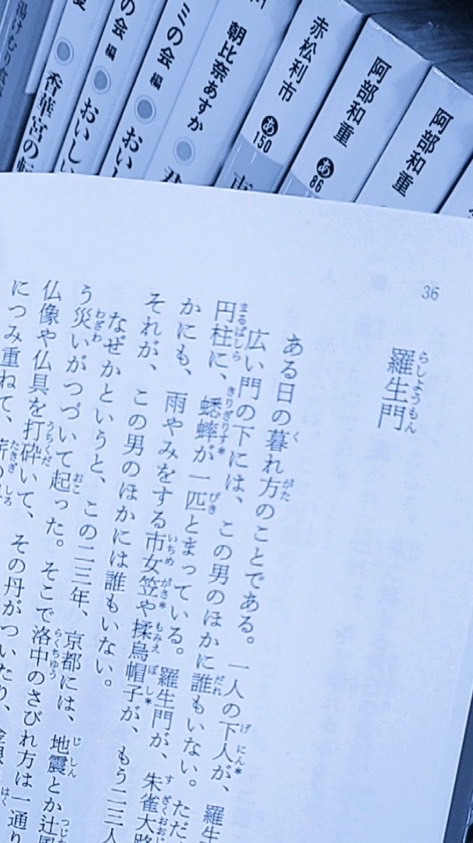 阿部和重
阿部和重
あ
86
赤松利市
あ
150
朝比奈あすか
ミの会 編
おいし
の会 編
おいしい
香華宮の転
36
羅生門
ある日の暮れ方のことである。一人の下人が、羅生
広い門の下には、この男のほかに誰もいない。ただ
円柱に、蟋蟀が一匹とまっている。羅生門が、朱雀大路
かにも、雨やみをする市女笠や揉烏帽子が、もう二三人
それが、この男のほかには誰もいない。
なぜかというと、この二三年、京都には、地震とか辻
う災いがつづいて起った。そこで洛中のさびれ方は一通り
仏像や仏具を打砕いて、その丹がついたり、
につみ重ねて、薪の